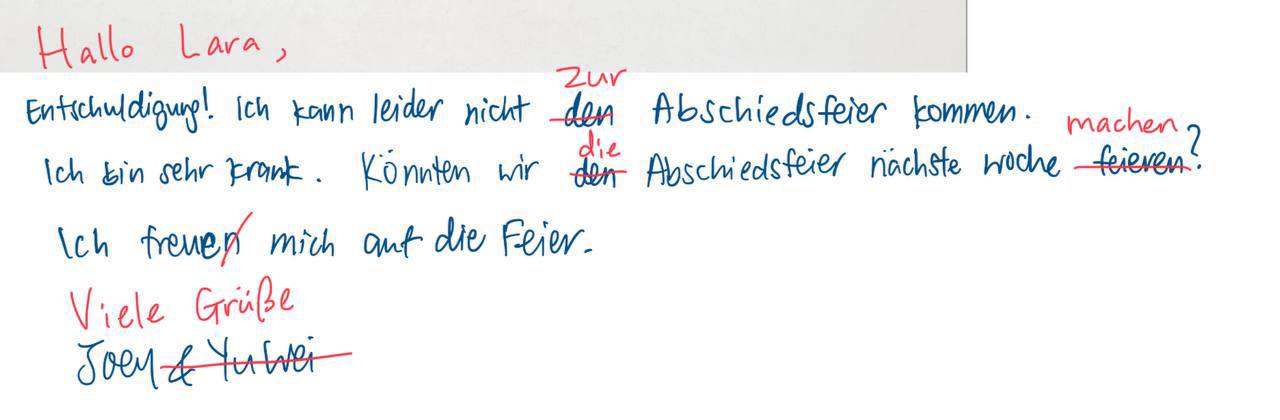 Hallo Lara,
zur
Entschuldigung! Ich kann leider nicht den Abschiedsfeier kommen.
die machen
Ich bin sehr krank. Könnten wir den Abschiedsfeier nächste woche feieren?
Ich freuen mich auf die Feier.
Viele Grüße
Joey & YuWei